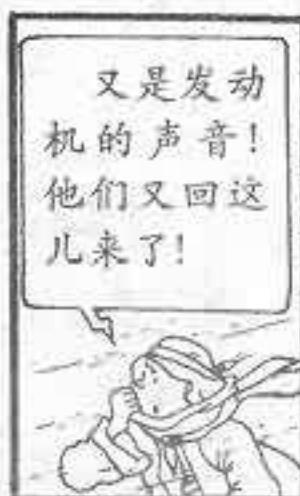 又是发动
机的声音！
他们又回这
儿来了！